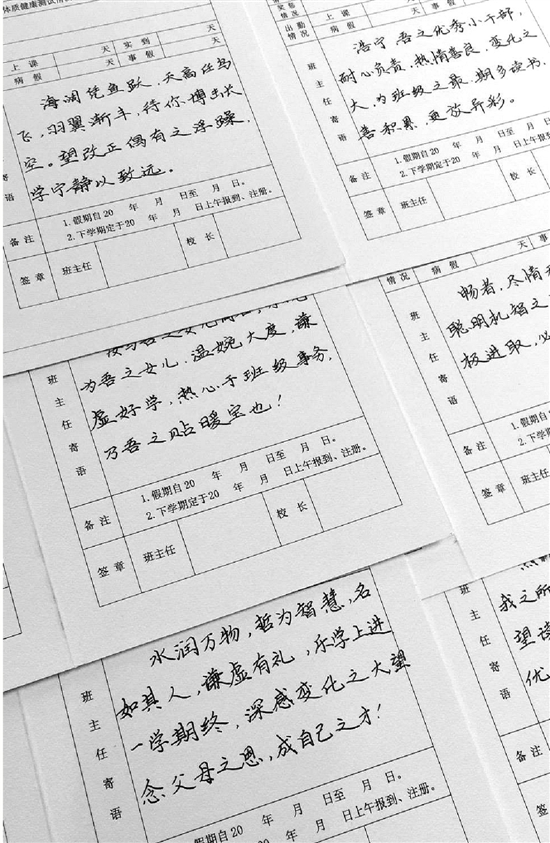 体质健康测试情况
上课 天 实到 天
病假 天 事假 天
海阔凭鱼跃，天高任鸟
飞，羽翼渐丰，待你博击长
空。望改正偶有之浮躁，
学宁静以致远。
寄语
备注
1.假期自20 年 月 日至 月 日。
2.下学期定于20 年 月 日上午报到、注册。
签章 班主任 校长
情况
出勤情况
上课 天
病假 天 事
浩宁，吾之优秀小干部，
耐心负责，热情善良，变化之
大，为班级之最，期多读书，
善积累，更放异彩。
班主任寄语
备注
1.假期自20 年 月 日至 月 日。
2.下学期定于20 年 月 日上午报到、注册。
签章 班主任 校长
为吾之女儿，温婉大度，谦
虚好学，热心于班级事务，
乃吾之贴暖宝也！
班主任寄语
备注
1.假期自20 年 月 日至 月 日。
2.下学期定于20 年 月 日上午报到、注册。
签章 班主任 校长
情况 病假 天 事
畅者，尽情
聪明机智之
极进取，必
班主任寄语
备注
1.假期自20
2.下学期定于20
签章 班主任
水润万物，哲为智慧，名
如其人，谦虚有礼，乐学上进
一学期终，深感变化之大望
念父母之恩，成自己之才！
班主任寄语
1.假期自20 年 月 日至 月 日。
日上午报到、注册。
我之所
望读
优
班主任寄语
备注
签章